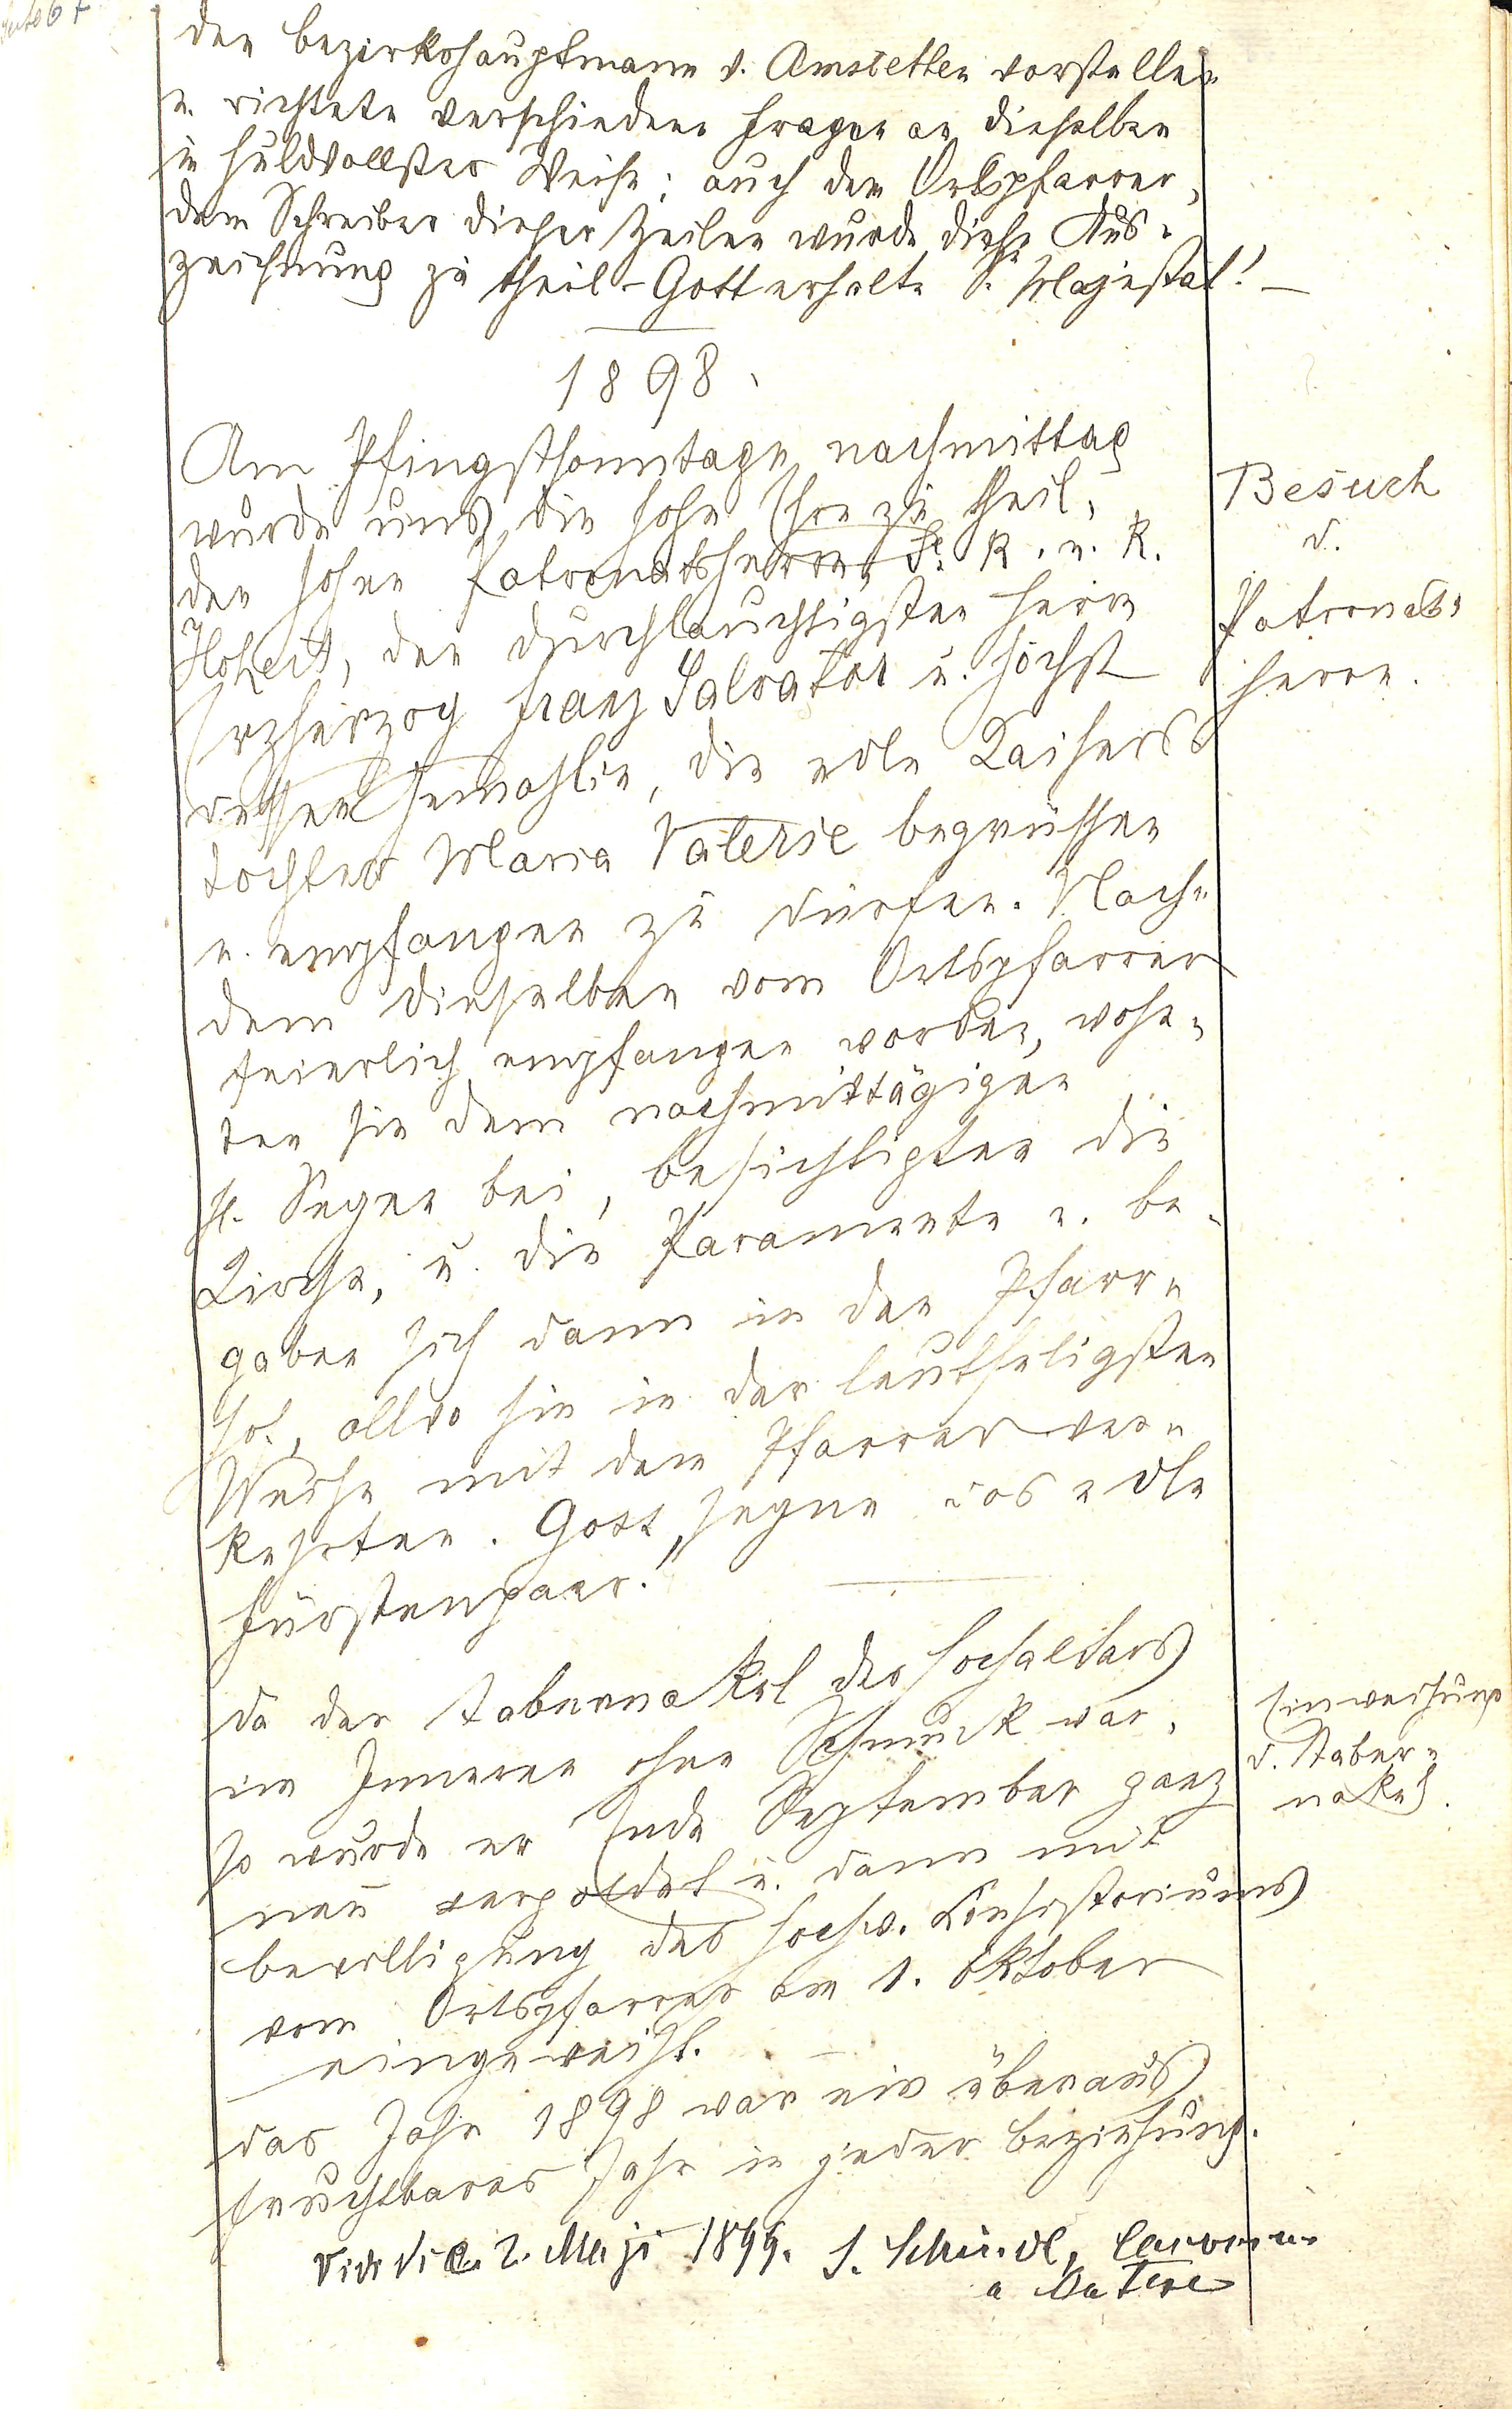 Seite 67
den Bezirkshauptmann v. Amstetten vorstellen
u. richtete verschiedene Fragen an dieselben
in huldvollster Weise; auch dem Ortspfarrer,
dem Schreiber dieser Zeilen wurde diese Aus-
zeichnung zu theil - Gott erhalte S. Majestät! -
1898.
Am Pfingstsonntage nachmittag
wurde uns die hohe Ehre zu theil,
den hohen Patronatsherrn, Se. K. u. K.
Hoheit, den durchlauchtigsten Herrn
Erzherzog Franz Salvator u. höchst
dessen Gemahlin, die edle Kaisers
tochter Maria Valerie begrüssen
u. empfangen zu dürfen. Nach-
dem dieselben vom Ortspfarrer
feierlich empfangen worden, wohn-
ten sie dem nachmittägigen
hl. Segen bei, besichtigten die
Kirche, u. die Paramente u. be-
gaben sich dann in den Pfarr-
hof, allwo sie in der leutseligsten
Weise mit dem Pfarrer ver-
kehrten. Gott segne das edle
Fürstenpaar!"
Besuch
d.
Patronats-
herrn.
Da der Tabernakel des Hochaltars
im Inneren ohne Schmuck war,
so wurde er Ende September ganz
neu vergoldet u. dann mit
Bewilligung des hochw. Consistoriums
vom Ortspfarrer am 1. Oktober
eingeweiht.
Einweihung
d. Taber-
nakel.
Das Jahr 1898 war ein überaus
fruchtbares Jahr in jeder Beziehung.
Vidi die 2. Maji 1899. J. Schindl,